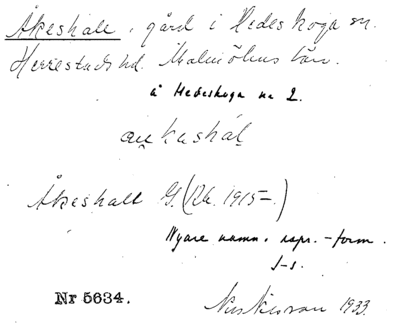 Åkeshall, gård i Hedeskoga sn.
Herrestads hd. Malmöhus län.
å Hedeskoga nr 2.
åu keshál
Åkeshall G. (Rk. 1915–.)
Nyare namn. uspr. -form.
J-s.
Nr 5634.
Nils Nilsson 1933.